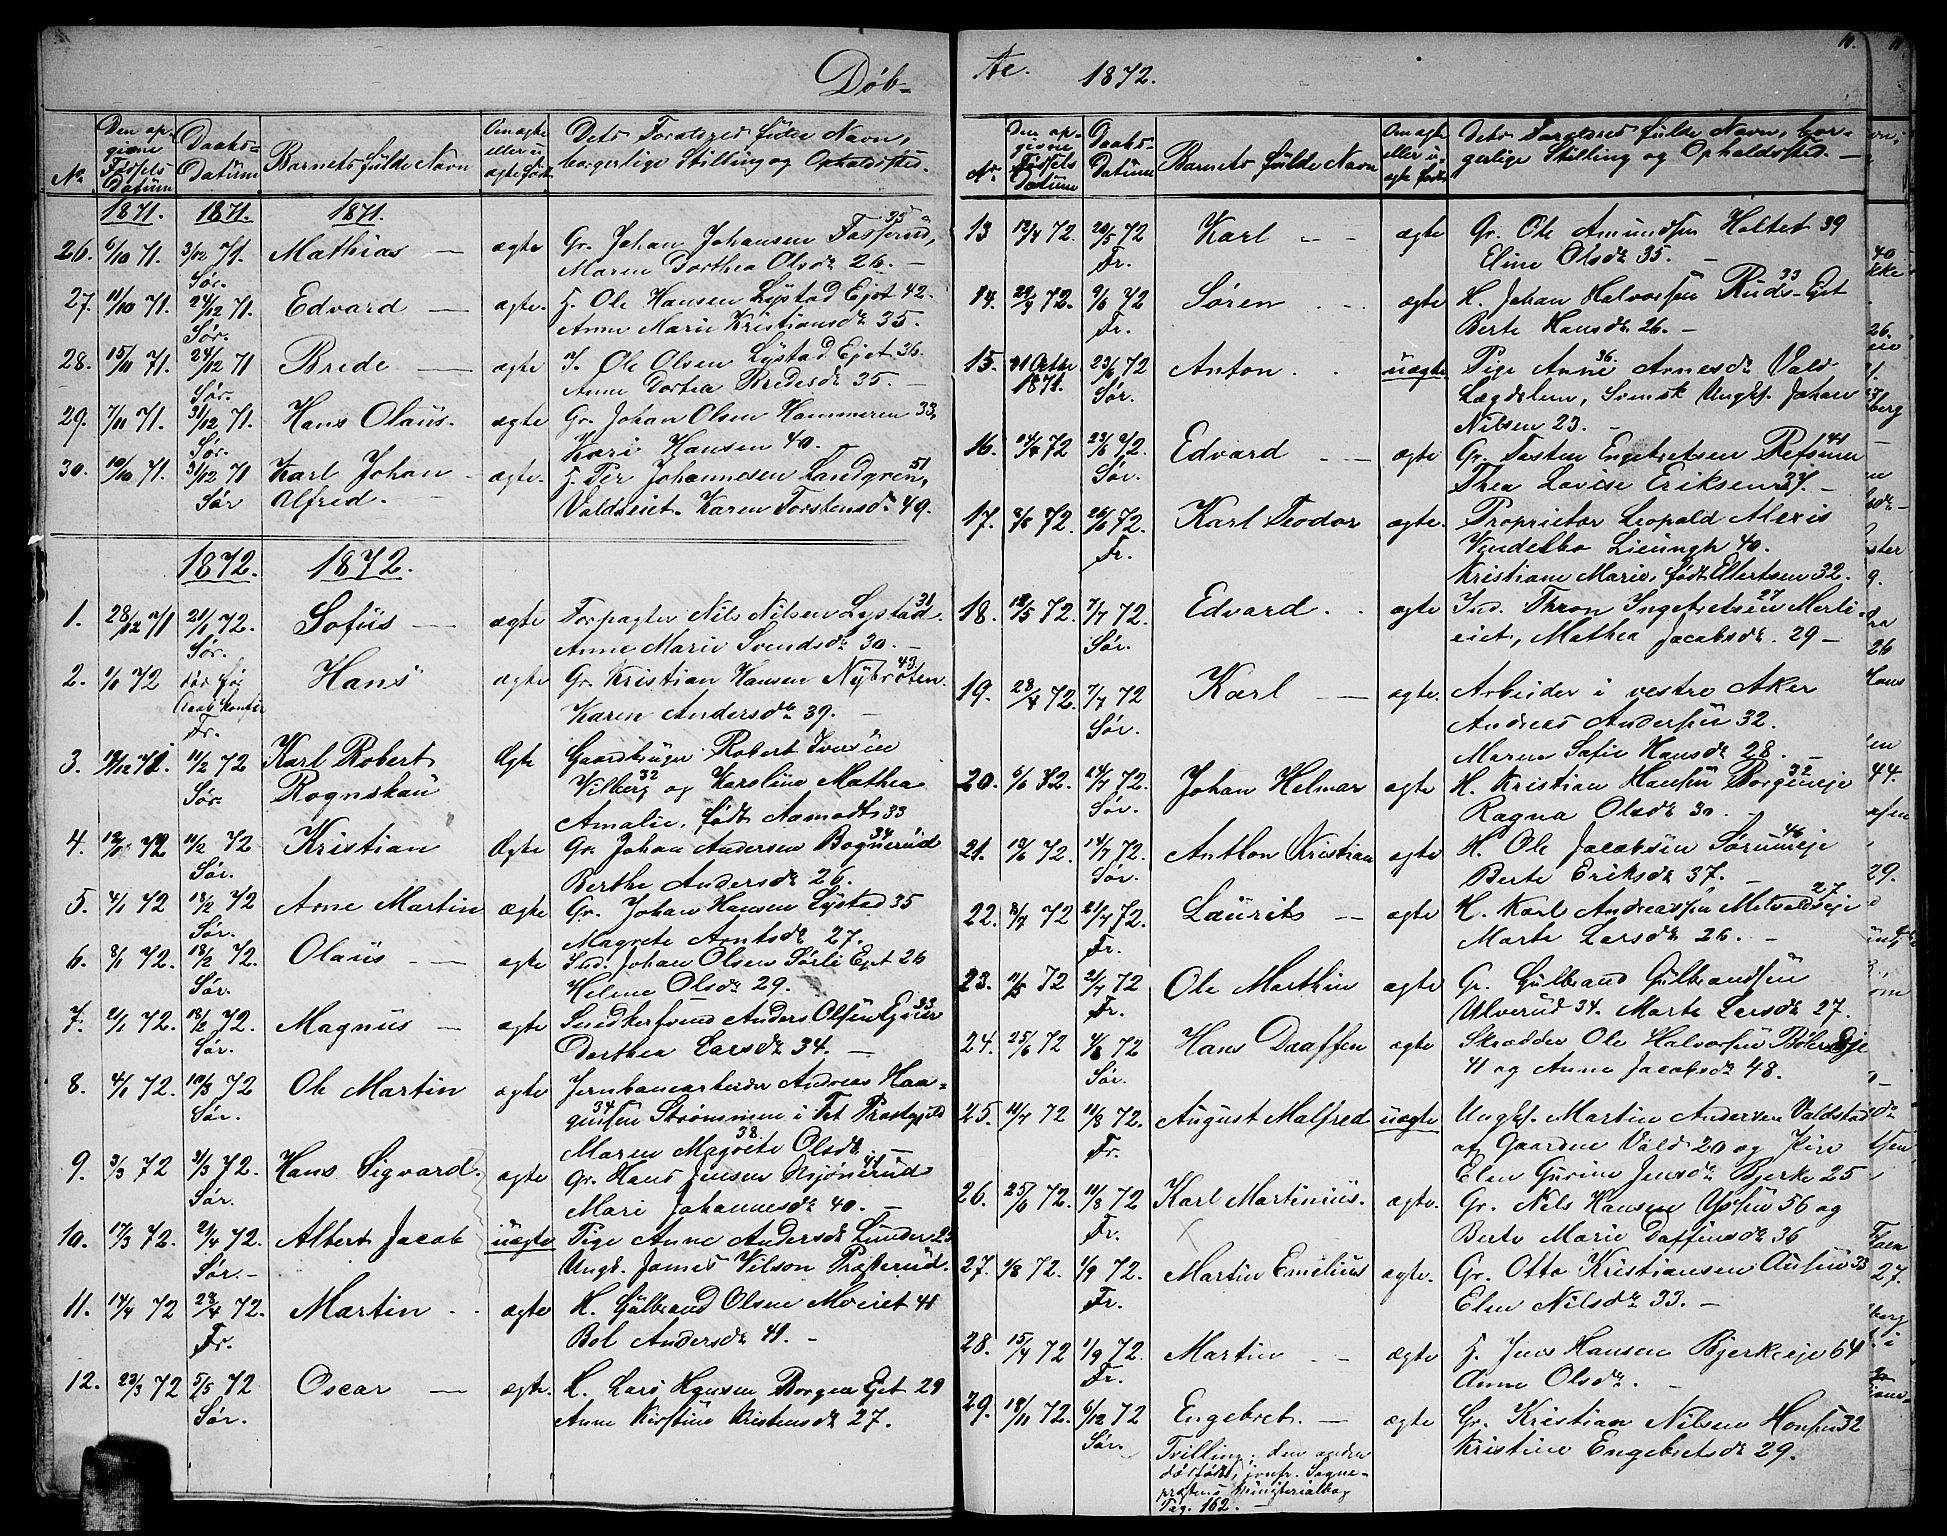 Døb-
Den op-
givne
Fødsels
Datum
Daabs-
Datum
Barnets fulde Navn
Om ægte
eller u-
ægte født
Dets Forældres fulde Navn,
borgerlige Stilling og Opholdssted.
No
1871. 1871. 1871.
26. 6/10 71. 3/12 71. Mathias — ægte Gr. Johan Johansen Fosserud, 35
Sør. Maren Dorthea Olsdr 26. —
27. 11/10 71. 24/12 71. Edvard — ægte. H. Ole Hansen Lystad Ejet 42.
Sør. Anne Marie Kristiansdr 35.
28. 15/11 71. 24/12 71 Brede — ægte I. Ole Olsen Lystad Ejet 36.
Sør. Anne Dortea Bredesdr 35. —
29. 7/11 71. 31/12 71. Hans Olaus. ægte Gr. Johan Olsen Hammeren 33,
Sør. Kari Hansen 40.
30. 10/10 71. 31/12 71 Karl Johan ægte. H. Per Johannesen Landgren, 51
Sør Alfred. — Valdseiet. Karen Torstensdr 49.
1872. 1872.
1. 28/12 71 21/1 72. Sofus — ægte Forpagter Nils Nilsen Lystad 31
Sør. Anne Marie Svendsdr 30. —
2. 72 død før Hans ægte Gr. Kristian Hansen Nybroten 43.
Fr. Karen Andersdr 39. —
3. 71. 11/2 72 Karl Robert Ægte Gaardbruger Robert Iversen
Sør. Rognskau Vilberg 32 og Karoline Mathea
Amalie, født Aamodt 33
4. 72 11/2 72 Kristian Ægte Gr. Johan Andersen Bognerud 34
Sør. Berthe Andersdr 26.
5. 4/1 72 18/2 72 Arne Martin ægte Gr. Johan Hansen Lystad 35
Sør. Magrete Arntsdr 27.
6. 8/1 72. 18/2 72. Olaus — ægte Ind. Johan Olsen Sørli Ejet 26
Sør. Helene Olsdr 29.
7. 21/1 72. 18/2 72. Magnus — ægte Snedkersvend Anders Olsen 33
Sør. Dorthea Larsdr 34. —
8. 4/1 72. 10/3 72 Ole Martin ægte Jernbanearbeider Andreas Haa-
Sør. gensen 34 Strømmen i Fet Præstgjeld
Maren Magrete 38 Olsdr —
9. 3/3 72 31/3 72. Hans Sigvard. ægte Gr. Hans Jensen 41
Sør. Mari Johannesdr 40. —
10. 17/3 72. 21/4 72. Albert Jacob uægte Pige Anne Andersdr Lunder 23
Sør. — Ungk. James Vilson Præsterud.
11. 14/4 72 28/4 72. Martin . . ægte H. Gulbrand Olsen Moeiet 41
Fr. Bol Andersdr 41. —
12. 23/3 72 5/5 72 Oscar — ægte. H. Lars Hansen Borgen Ejet 29
Sør. Anne Kirstine Kristensdr 27.
te. 1872.
10.
No.
Den op-
givne
Fødsels
Datum
Daabs-
Datum
Barnets fulde Navn
Om ægte
eller u-
ægte født
Dets Forældres fulde Navn, bor-
gerlige Stilling og Opholdssted. —
13 72. 20/5 72 Karl — — ægte Gr. Ole Amundsen Holtet 39
Fr. Eline Olsdr 35. —
14. 72. 9/6 72 Søren . . ægte H. Johan Halvorsen Ruds-Ejet 33
Fr. Berte Hansdr 26. —
15. 31 Octbr 23/6 72 Anton . . uægte Pige Anne 36 Arnesdr Vald
1871. Sør. Lægdslem, Svensk Ungkf. Johan
Nilsen 23. —
16. 14/4 72 23/6 72. Edvard — — ægte Gr. Tosten Engebretsen Refsum 41
Sør. Thea Lovise Eriksen 37. —
17. 72. 26/6 72. Karl Teodor ægte. Proprietær Leopold Alexis
Fr. Vendelbo Lieungh 40.
Kristiane Marie, født Ellertsen 32.
18. 72. 7/7 72. Edvard . . ægte Ind. Thron Ingebretsen 27 Merli-
Sør. eiet, Mathea Jacobsdr. 29 —
19. 28/4 72. 7/7 72 Karl — ægte. Arbeider i vestre Aker
Sør. Andreas Andersen 32.
Maren Sofie Hansdr 28. —
20. 6/6 72. 14/7 72. Johan Helmar ægte H. Kristian Hansen Borgeneje 32
Sør. Ragna Olsdr 30. —
21. 72. 14/7 72. Anthon Kristian ægte H. Ole Jacobsen Sørumeje 46
Sør. Berte Eriksdr 37. —
22. 72 21/7 72. Laurits — ægte H. Karl Andreassen Melvoldseje 27
Fr. Marte Larsdr 26. —
23. 72 21/7 72 Ole Marthin ægte Gr. Gulbrand Gulbrandsen
Fr. Ulverud 34. Marte Larsdr 27.
24. 25/6 72 4/8 72 Hans Daaffen ægte Skrædder Ole Halvorsen Bølers Eje
Sør. 41 og Anne Jacobsdr 48.
25. 72 11/8 72. August Malfred uægte Ungkf. Martin Andersen Valdstad
Fr. af Gaarden Vald 20 og Pige
Elen Gurine Jensdr Bjerke 25
26. 25/6 72. 11/8 72 Karl Martinius. ægte. Gr. Nils Hansen 56 og
Fr. Berte Marie Daffinsdr 36
27. 72. 1/9 72. Martin Emilius ægte. Gr. Otto Kristiansen 33
Fr. Elen Nilsdr 33. —
28. 15/7 72 1/9 72. Martin — ægte H. Jens Hansen Bjerkeeje 64
Fr. Anne Olsdr. —
29. 18/11 72. 6/12 72 Engebret. — ægte Gr. Kristian Nilsen 32
Sør. Tvilling; den anden Kristine Engebretsdr 29.
dødfødt, jevnf. Sogne-
præstens Ministerialbog
Pag. 162. —